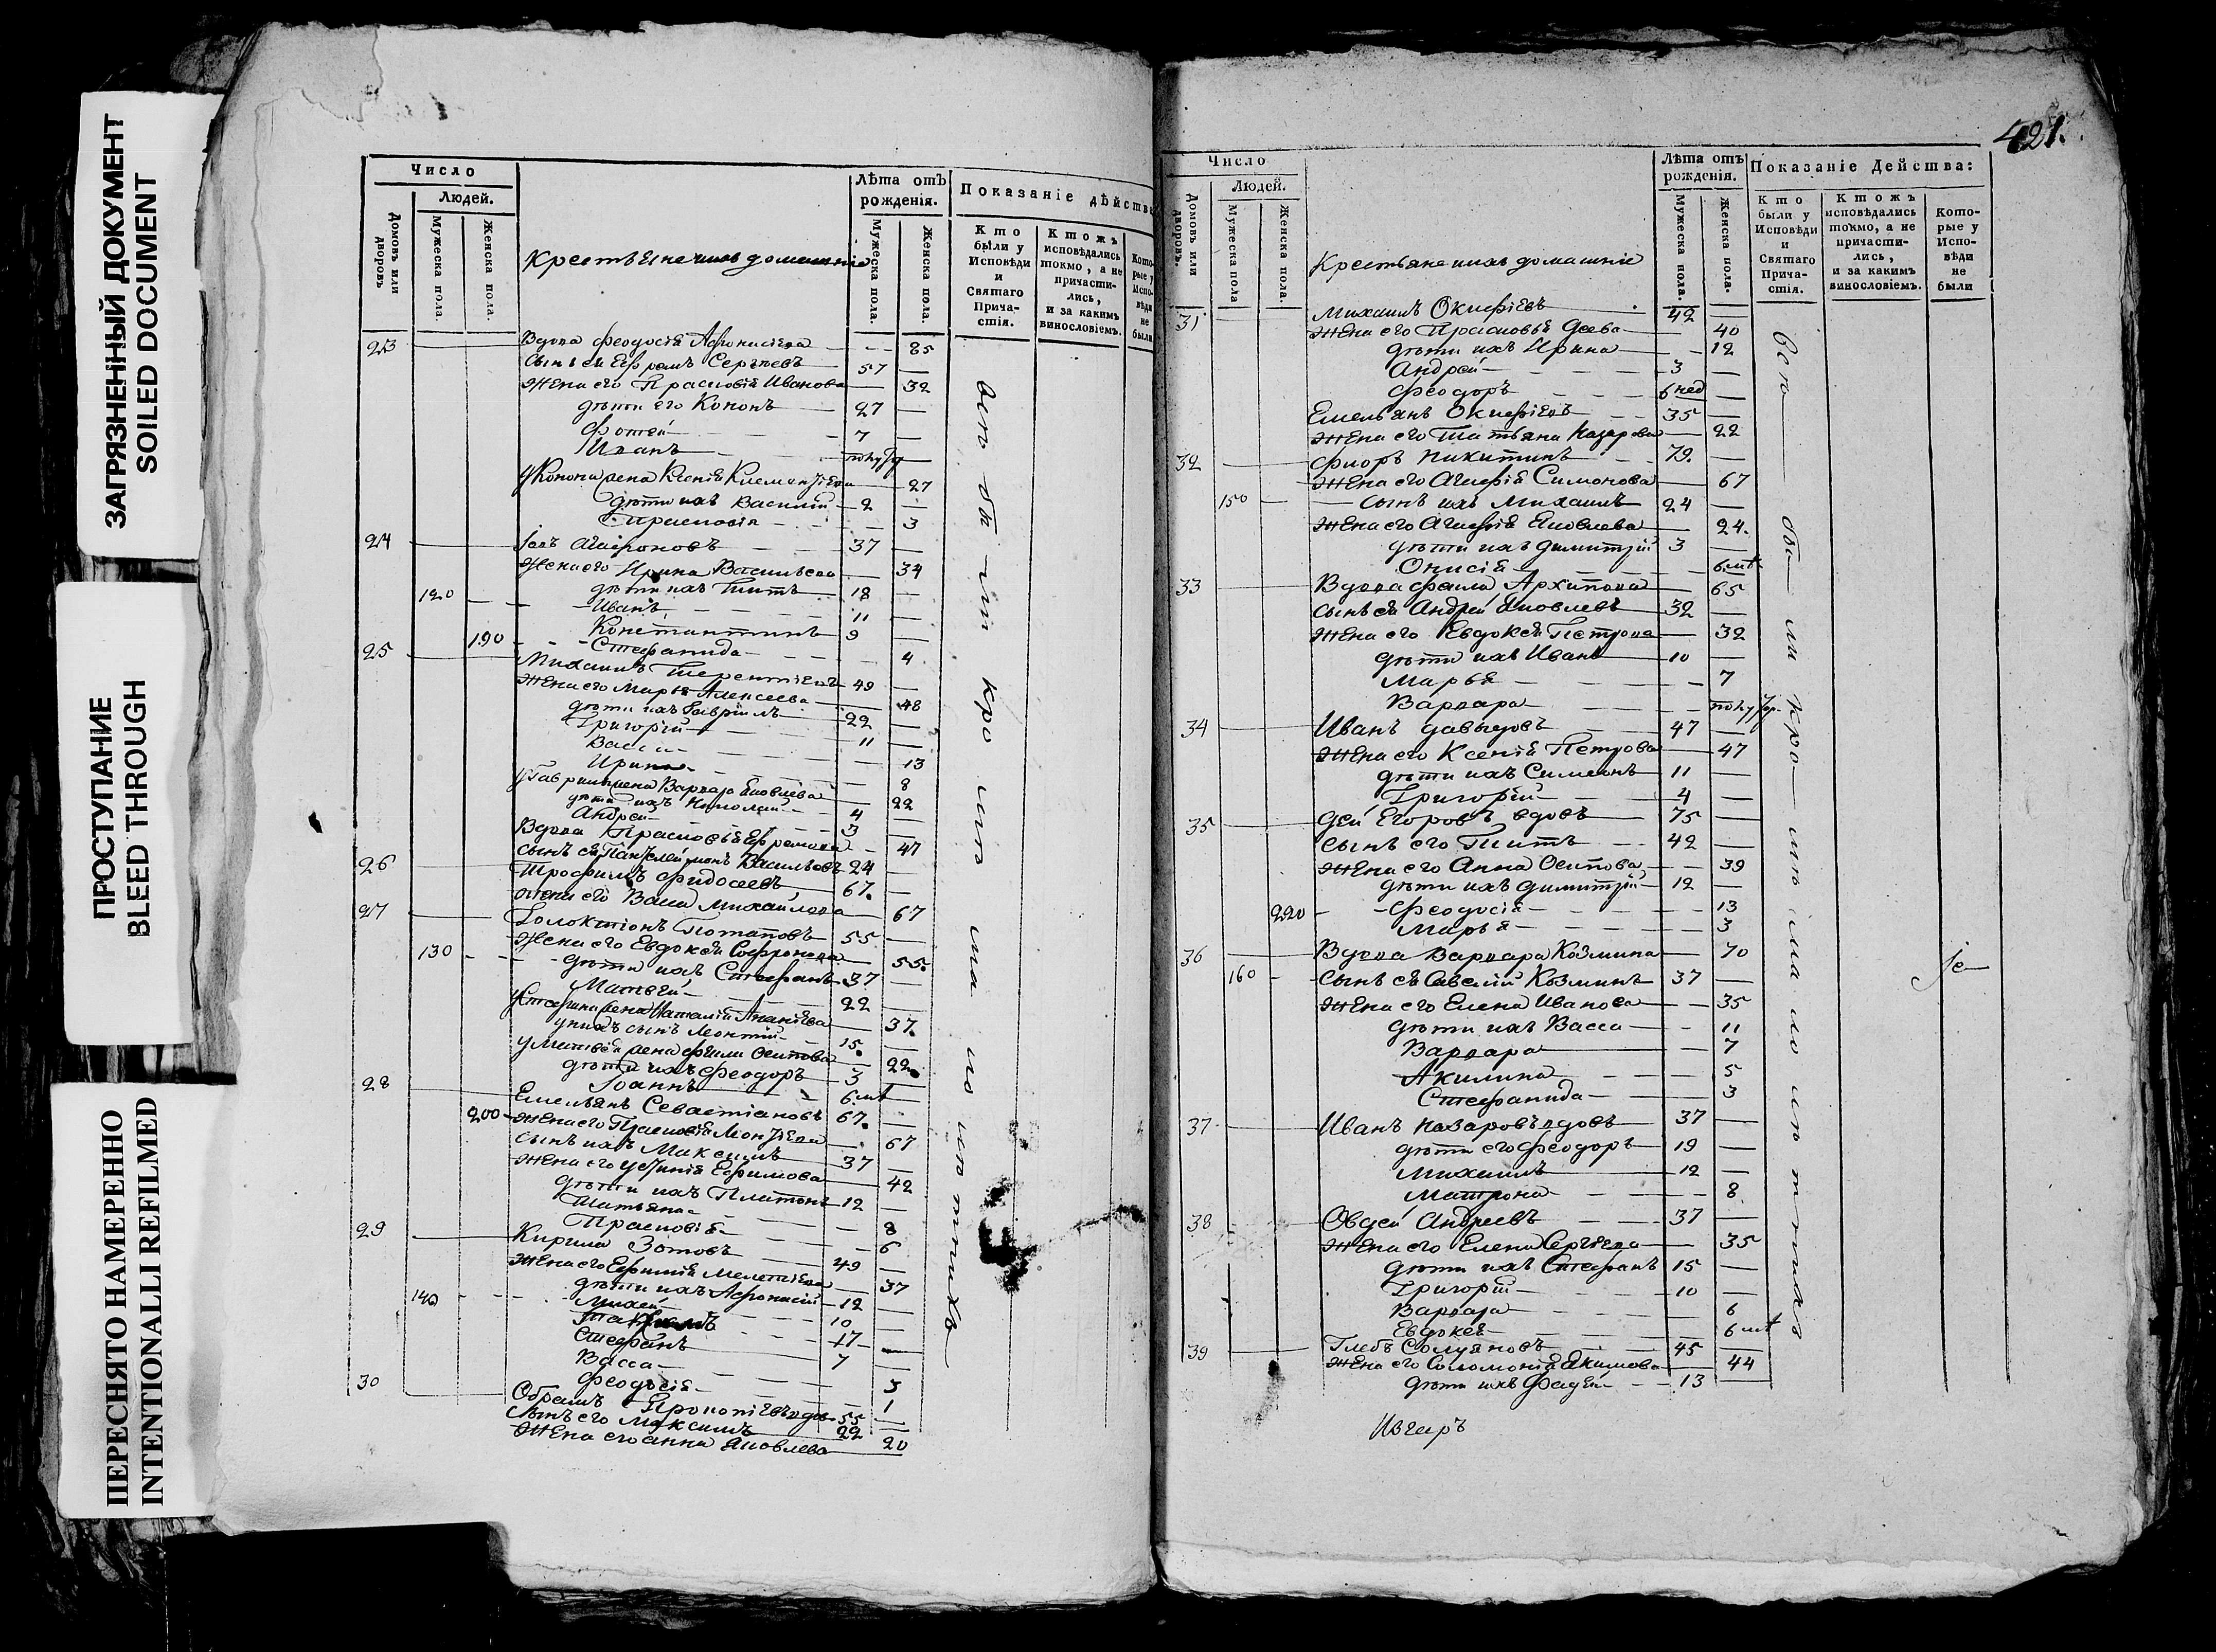 ЗАГРЯЗНЕННЫЙ ДОКУМЕНТ
SOILED DOCUMENT
ПРОСТУПАНИЕ
BLEED THROUGH
ПЕРЕСНЯТО НАМЕРЕННО
INTENTIONALLI REFILMED
Число
Людей.
Домовъ или дворовъ
Мужеска пола.
Женска пола.
Крестьяне ихъ домашнiе
Лѣта отъ рожденiя.
Мужеска пола.
Женска пола.
Показанiе дѣйства
Кто были у Исповѣди и Святаго Причастiя.
Ктожъ исповѣдались токмо, а не причастились, и за какимъ винословiемъ.
Которые у Исповѣди не были
23 Вдова Феодосiя 85
Сынъ ея Ефремъ Сергѣевъ 57
Жена его Прасковiя Иванова 32
дѣти его Кононъ 27
Фотей 7
Иванъ
Ксенiя 27
дѣти ихъ Василiй 2
Прасковiя 3
24 Iовъ Агафоновъ 37
Жена его Ирина Васильева 34
120 дѣти ихъ Титъ 18
Иванъ 11
Константинъ 9
190 Стефанида 4
25 Михаилъ Терентiевъ 49
Жена его Марья Алексеева 48
дѣти ихъ Гаврiилъ 22
Григорiй 11
Васса 13
Ирина 8
Варвара Яковлева 22
дѣти ихъ Николай 4
Андрей 3
Вдова Прасковiя Ефремова 47
сынъ ея Пантелеймонъ Васильевъ 24
26 Трофимъ Фидосеевъ 67.
жена его Васса Михайлова 67
27 Галактiонъ Потаповъ 55
130 Жена его Евдокея Софронова 55.
дѣти ихъ Стефанъ 37
Матвей 22
Наталiя Ананiева 37.
у нихъ сынъ Леонтiй 15.
Осипова 22.
дѣти ихъ Феодоръ 3
Iоаннъ 6
28 Емельянъ Севастiановъ 67.
200 Жена его Прасковiя 67
сынъ ихъ Максимъ 37
Жена его Ефимова 42
дѣти ихъ Платонъ 12
Татьяна 8
Прасковiя 6
29 Кирила Зотовъ 49
Жена его Ефимiя Мелетiева 37
дѣти ихъ Афонасiй 12
140 Михей 10
Стефанъ 7
Васса 3
Феодосiя 1
30 55
Сынъ его Максимъ 22
Жена его Анна Яковлева 20
всѣ были кромѣ малолѣтнихъ
421.
Число
Людей.
Домовъ или дворовъ.
Мужеска пола
Женска пола.
Крестьяне ихъ домашнiе
Лѣта отъ рожденiя.
Мужеска пола.
Женска пола.
Показанiе Действа:
Кто были у Исповѣди и Святаго Причастiя.
Ктожъ исповѣдались токмо, а не причастились, и за какимъ винословiемъ.
Которые у Исповѣди не были
31 Михаилъ Окифiевъ 42
Жена его Прасковья 40
дѣти ихъ Ирина 12
Андрей 3
Феодоръ 6 нед
Емельянъ Окифiевъ 35
Жена его Татьяна Назарова 22
32 Никитинъ 79.
Жена его Агафiя Симонова 67
150 Сынъ ихъ Михаилъ 24
Жена его Агафiя Яковлева 24.
дѣти ихъ Димитрiй 3
Онисiя 6
33 Вдова Архипова 65
Сынъ ея Андрей Яковлевъ 32
Жена его Евдокея Петрова 32
дѣти ихъ Иванъ 10
Марья 7
Варвара
34 Иванъ Давыдовъ 47
Жена его Ксенiя Петрова 47
дѣти ихъ Симеонъ 11
Григорiй 4
35 Егоровъ вдовъ 75
Сынъ его Титъ 42
Жена его Анна Осипова 39
дѣти ихъ Димитрiй 12
220 Феодосiя 13
Марья 3
36 Вдова Варвара Козмина 70
160 Сынъ ея Савелiй Козминъ 37
Жена его Елена Иванова 35
дѣти ихъ Васса 11
Варвара 7
Акилина 5
Стефанида 3
37 Иванъ Назаровъ вдовъ 37
дѣти его Феодоръ 19
Михаилъ 12
Матрона 8
38 Овдей Андреевъ 37
Жена его Елена Сергѣева 35
дѣти ихъ Стефанъ 15
Григорiй 10
Варвара 6
Евдокея 6
39 Глебъ Солуяновъ 45
Жена его Соломонiя Якимова 44
дѣти ихъ Фадей 13
всѣ были кромѣ малолѣтнихъ